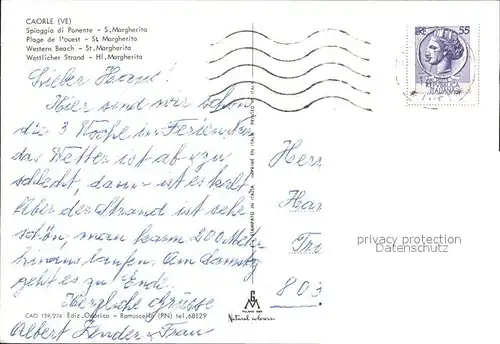 CAORLE (VE)
Spiaggia di Ponente - S. Margherita
Plage de l'ouest - St. Margherita
Western Beach - St. Margherita
Westlicher Strand - Hl. Margherita
LIRE 55
ITALIANA
Lieber Hans!
Hier sind wir schon
die 3 Woche in Ferien
das Wetter ist ab & zu
schlecht, dann ist es kalt
Aber der Strand ist sehr
schön, man kann 200 Meter
hinaus laufen. Am Samstag
geht es zu Ende.
Herzliche Grüsse
Albert & Frau
Her
Han
803
privacy protection
Datenschutz
CAO 159/276 Ediz. - Ramuscello (PN) tel. 68129
Natural colorers.